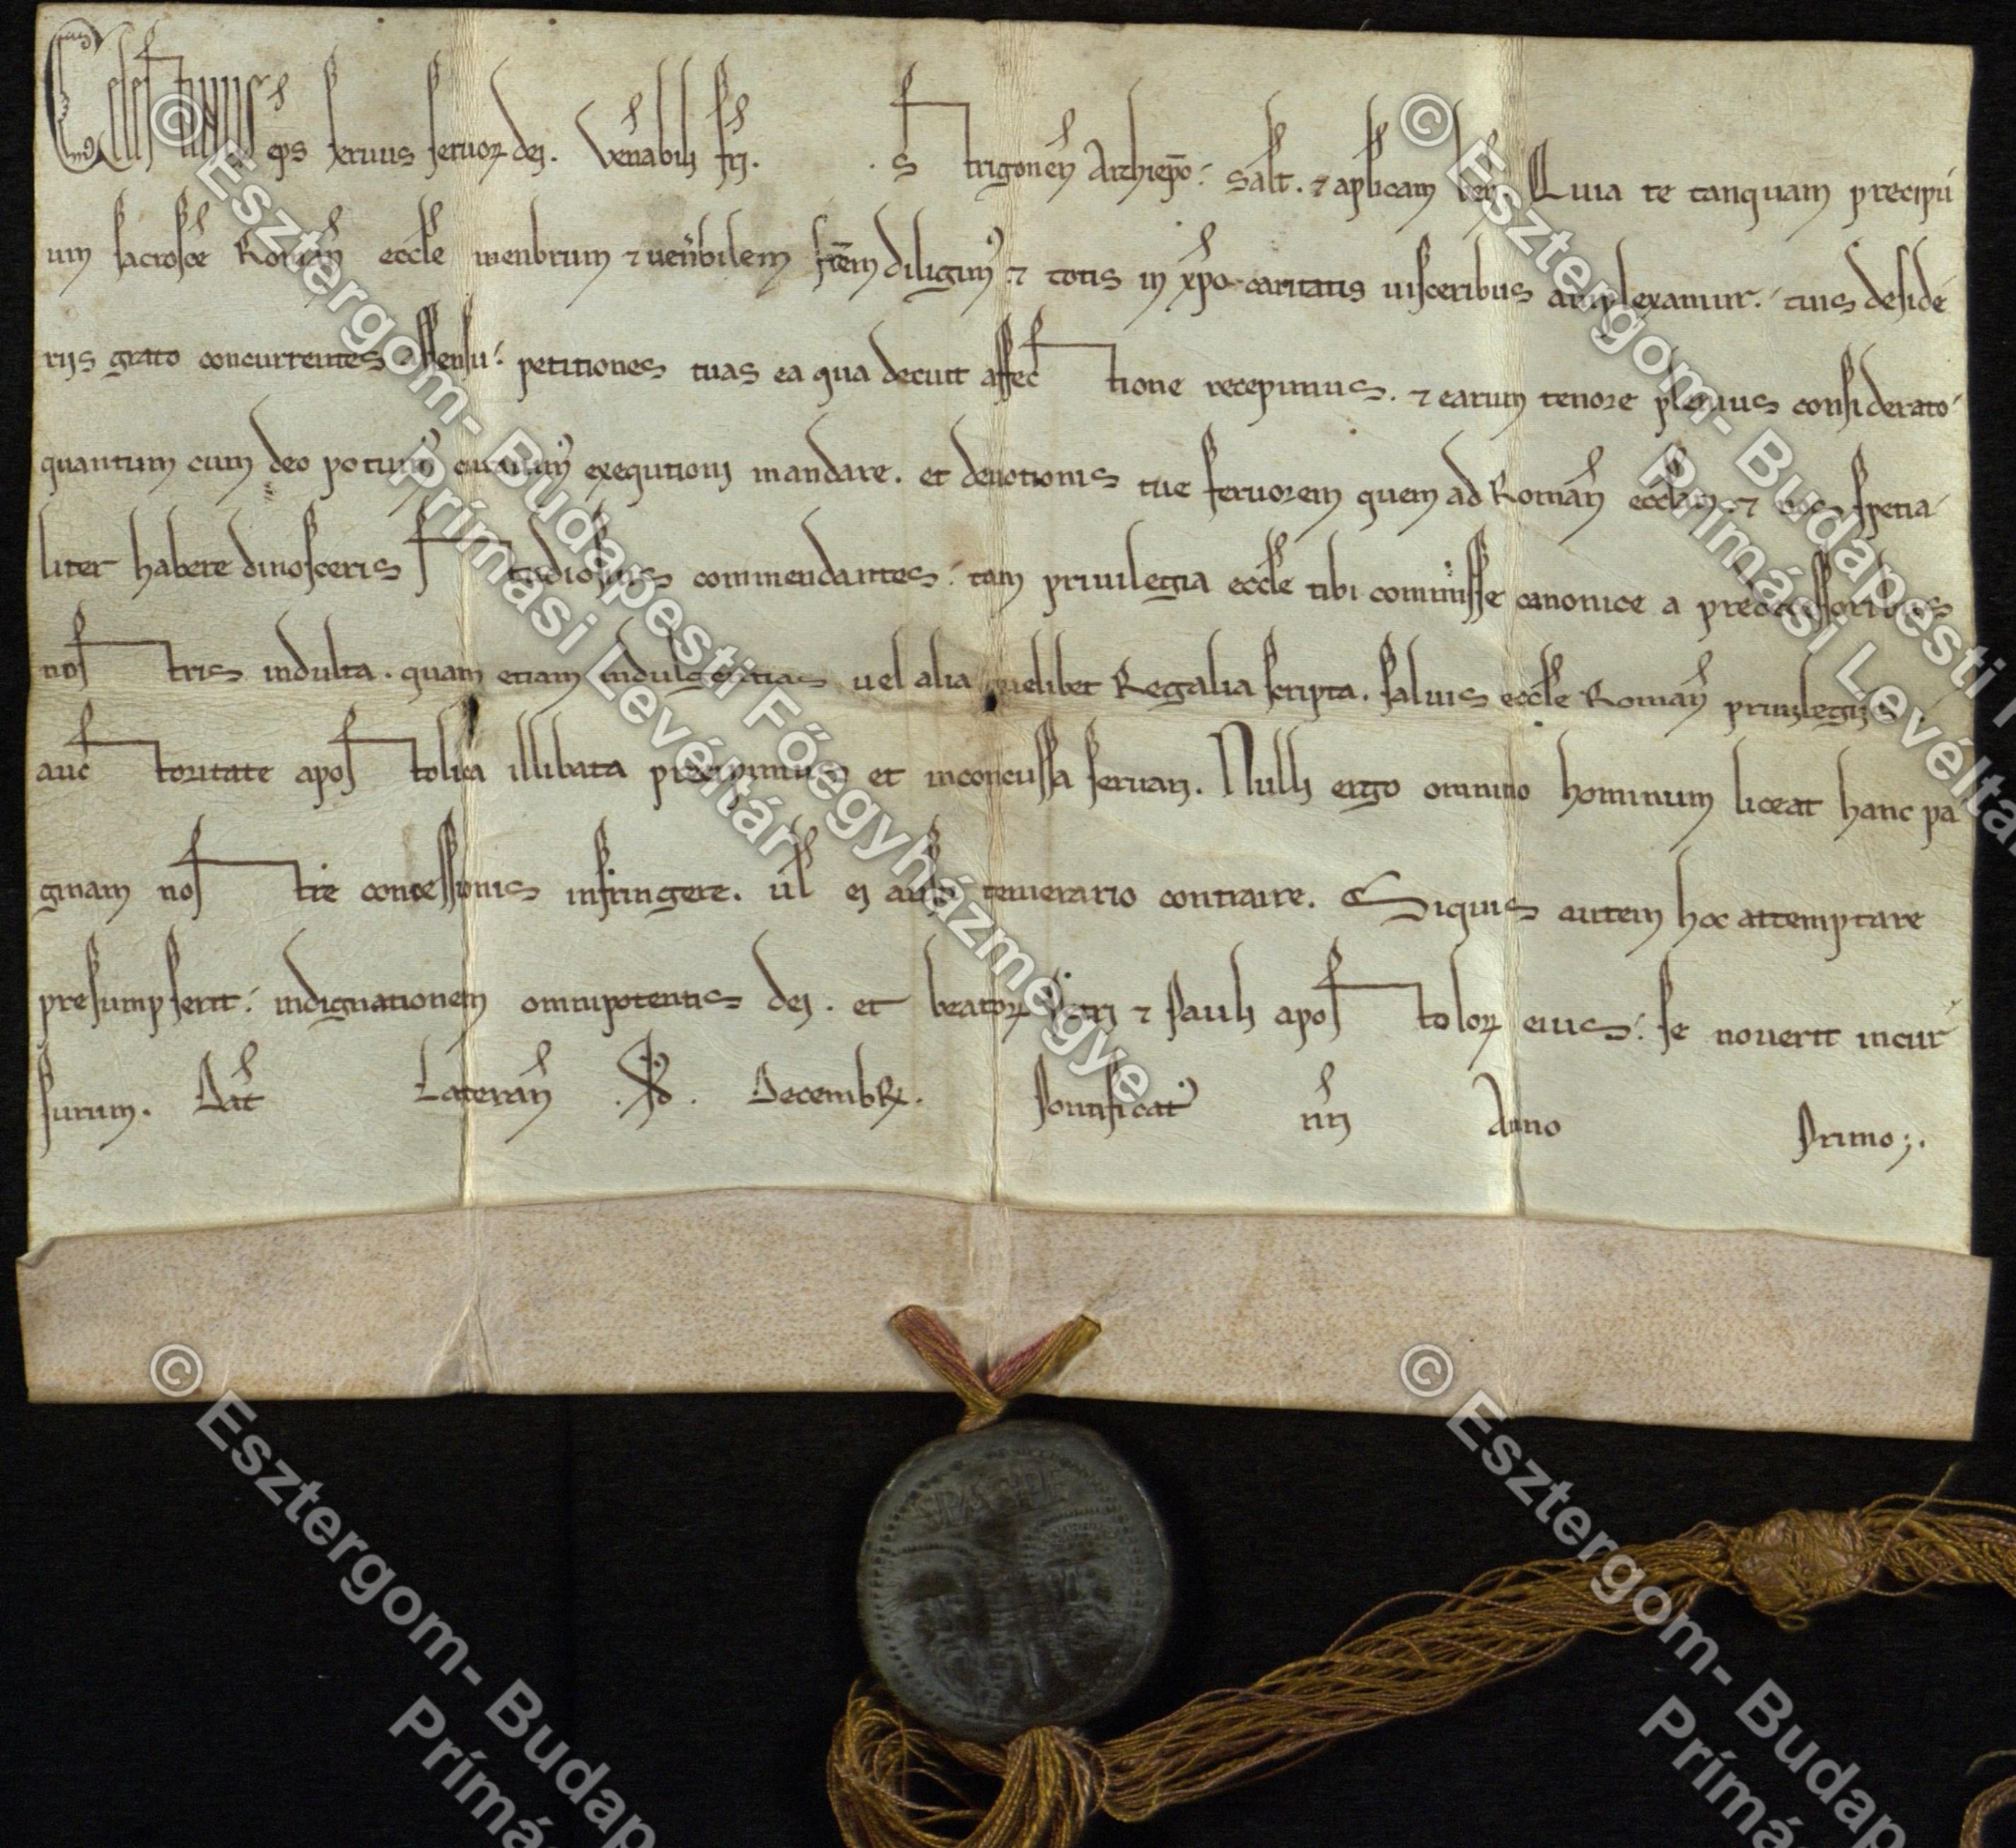 Celestinus eps seruus seruoꝝ dei. Veñabili fri. . Strigoneñ Archiepo: Salt. ⁊ aplicam ben Quia te tanquam precipu
um sacrosce Romañ eccle menbrum ⁊ uen'bilem frem diligim' ⁊ totis in xpo caritatis uisceribus amplexamur. tuis deside
riis grato concurrentes assensu: petitiones tuas ea qua decuit affectione recepimus. ⁊ earum tenore plenius considerato
quantum cum deo potuim' curauim' exequtioni mandare. et deuotionis tue feruorem quem ad Romañ ecclam ⁊ nos spetia
liter habere dinosceris studiosius commendantes: tam priuilegia eccle tibi commisse canonice a predecessoribus
nostris indulta. quam etiam indulgentias uel alia quelibet Regalia scripta. saluis eccle Romañ priuilegiis
auctoritate apostolica illibata precipimus et inconcussa seruari. Nulli ergo omnino hominum liceat hanc pa
ginam nostre concessionis infringere. ul ei ausu temerario contraire. Siquis autem hoc attemptare
presumpserit: indignationem omnipotentis dei. et beatoꝝ Petri ⁊ Pauli apostoloꝝ eius: se nouerit incur
surum. Dat Laterañ Decembꝝ. Pontificat' nri Anno Primo;.
SPASPE
© Esztergom- Budapesti Főegyházmegye
Prímási Levéltár
© Esztergom- Budapesti
Prímási Levéltár
© Esztergom- Budap
Prímá
© Esztergom- Budap
Prímá